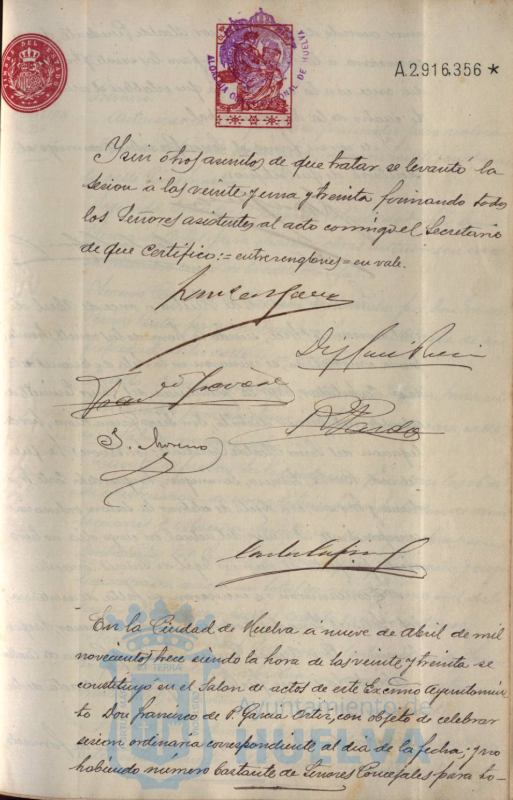 A.2.916.356 *
ALCALDIA CONSTITUCIONAL DE HUELVA
Y sin otros asuntos de que tratar se levantó la
sesion á las veinte y una y treinta firmando todos
los Señores asistentes al acto conmigo el Secretario
de que certifico := entre renglones = en vale.
J. Moreno
R Pardo
En la Ciudad de Huelva á nueve de Abril de mil
novecientos trece siendo la hora de las veinte y treinta se
constituyó en el Salon de actos de este Excmo Ayuntamien
to Don Francisco de P. Garcia Ortiz, con objeto de celebrar
sesion ordinaria correspondiente al dia de la fecha: y no
habiendo número bastante de Señores Concejales para to-
Ayuntamiento de
HUELVA